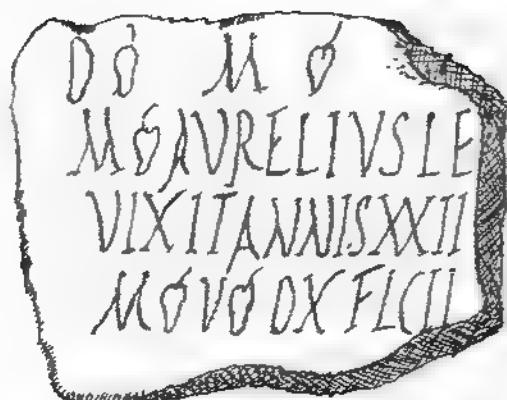 D M
M AVRELIVS LE
VIXIT ANNIS XXII
M V DX FLCII